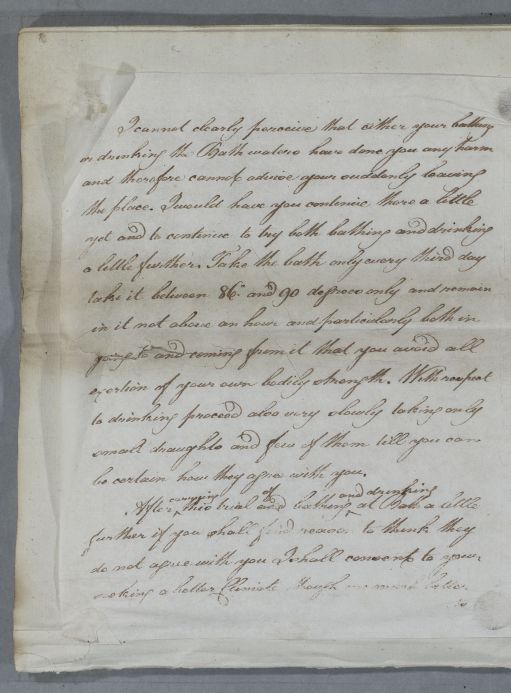 I cannot clearly perceive that either your bathing
or drinking the Bath waters have done you any harm
and therefore cannot advise your suddenly leaving
the place. I would have you continue there a little
yet and to continue to try both bathing and drinking
a little further. Take the bath only every third day
take it between 86° and 90 degrees only and remain
in it not above an hour and particularly both in
going to and coming from it that you avoid all
exertion of your own bodily strength. With respect
to drinking proceed also very slowly taking only
small draughts and few of them till you can
be certain how they agree with you.
After carrying this trial of and bathing and drinking at Bath a little
further if you shall find reason to think they
do not agree with you I shall consent to your
seeking a better Climate though